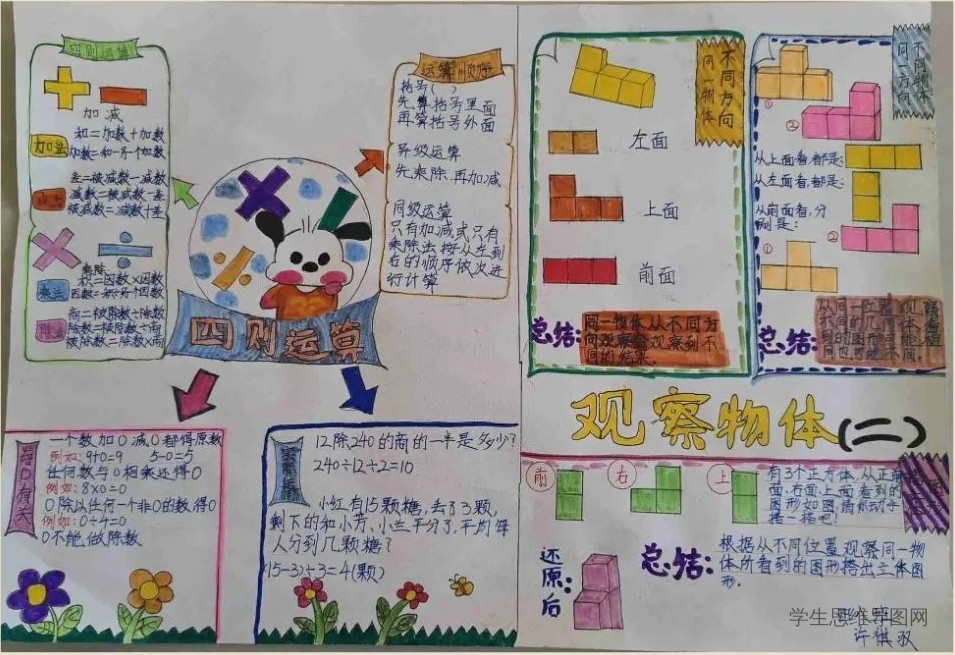 四则运算
加减
加法
和=加数+加数
加数=和-另一个加数
减法
差=被减数-减数
减数=被减数-差
被减数=减数+差
乘除
乘法
积=因数×因数
因数=积÷另一个因数
除法
商=被除数÷除数
除数=被除数÷商
被除数=除数×商
运算顺序
括号( )
先算括号里面
再算括号外面
异级运算
先乘除 再加减
同级运算
只有加减或只有
乘除法,按从左到
右的顺序依次进
行计算
四则运算
与0有关
一个数加0 减0都得原数
例如:9+0=9 5-0=5
任何数与0相乘还得0
例如:8×0=0
0除以任何一个非0的数得0
例如:0÷4=0
0不能做除数
12除240的商的一半是多少?
240÷12÷2=10
小红有15颗糖,丢了3颗,
剩下的和小芳、小兰平分了,平均每
人分到几颗糖?
(15-3)÷3=4(颗)
不同方向
同一物体
左面
上面
前面
总结:
同一物体从不同方
向观察会观察到不
同的结果.
不同物体
同一方向
①
②
从上面看,都是:
从左面看,都是:
从前面看,分
别是:
①
②
总结:
观察物体(二)
前
右
上
有3个正方体,从正前
面、右面、上面看到的
图形如图,请你动手
搭一搭吧!
还原后:
总结:
根据从不同位置观察同一物
体所看到的图形搭出立体图
形.
学生思维导图网
许祺双